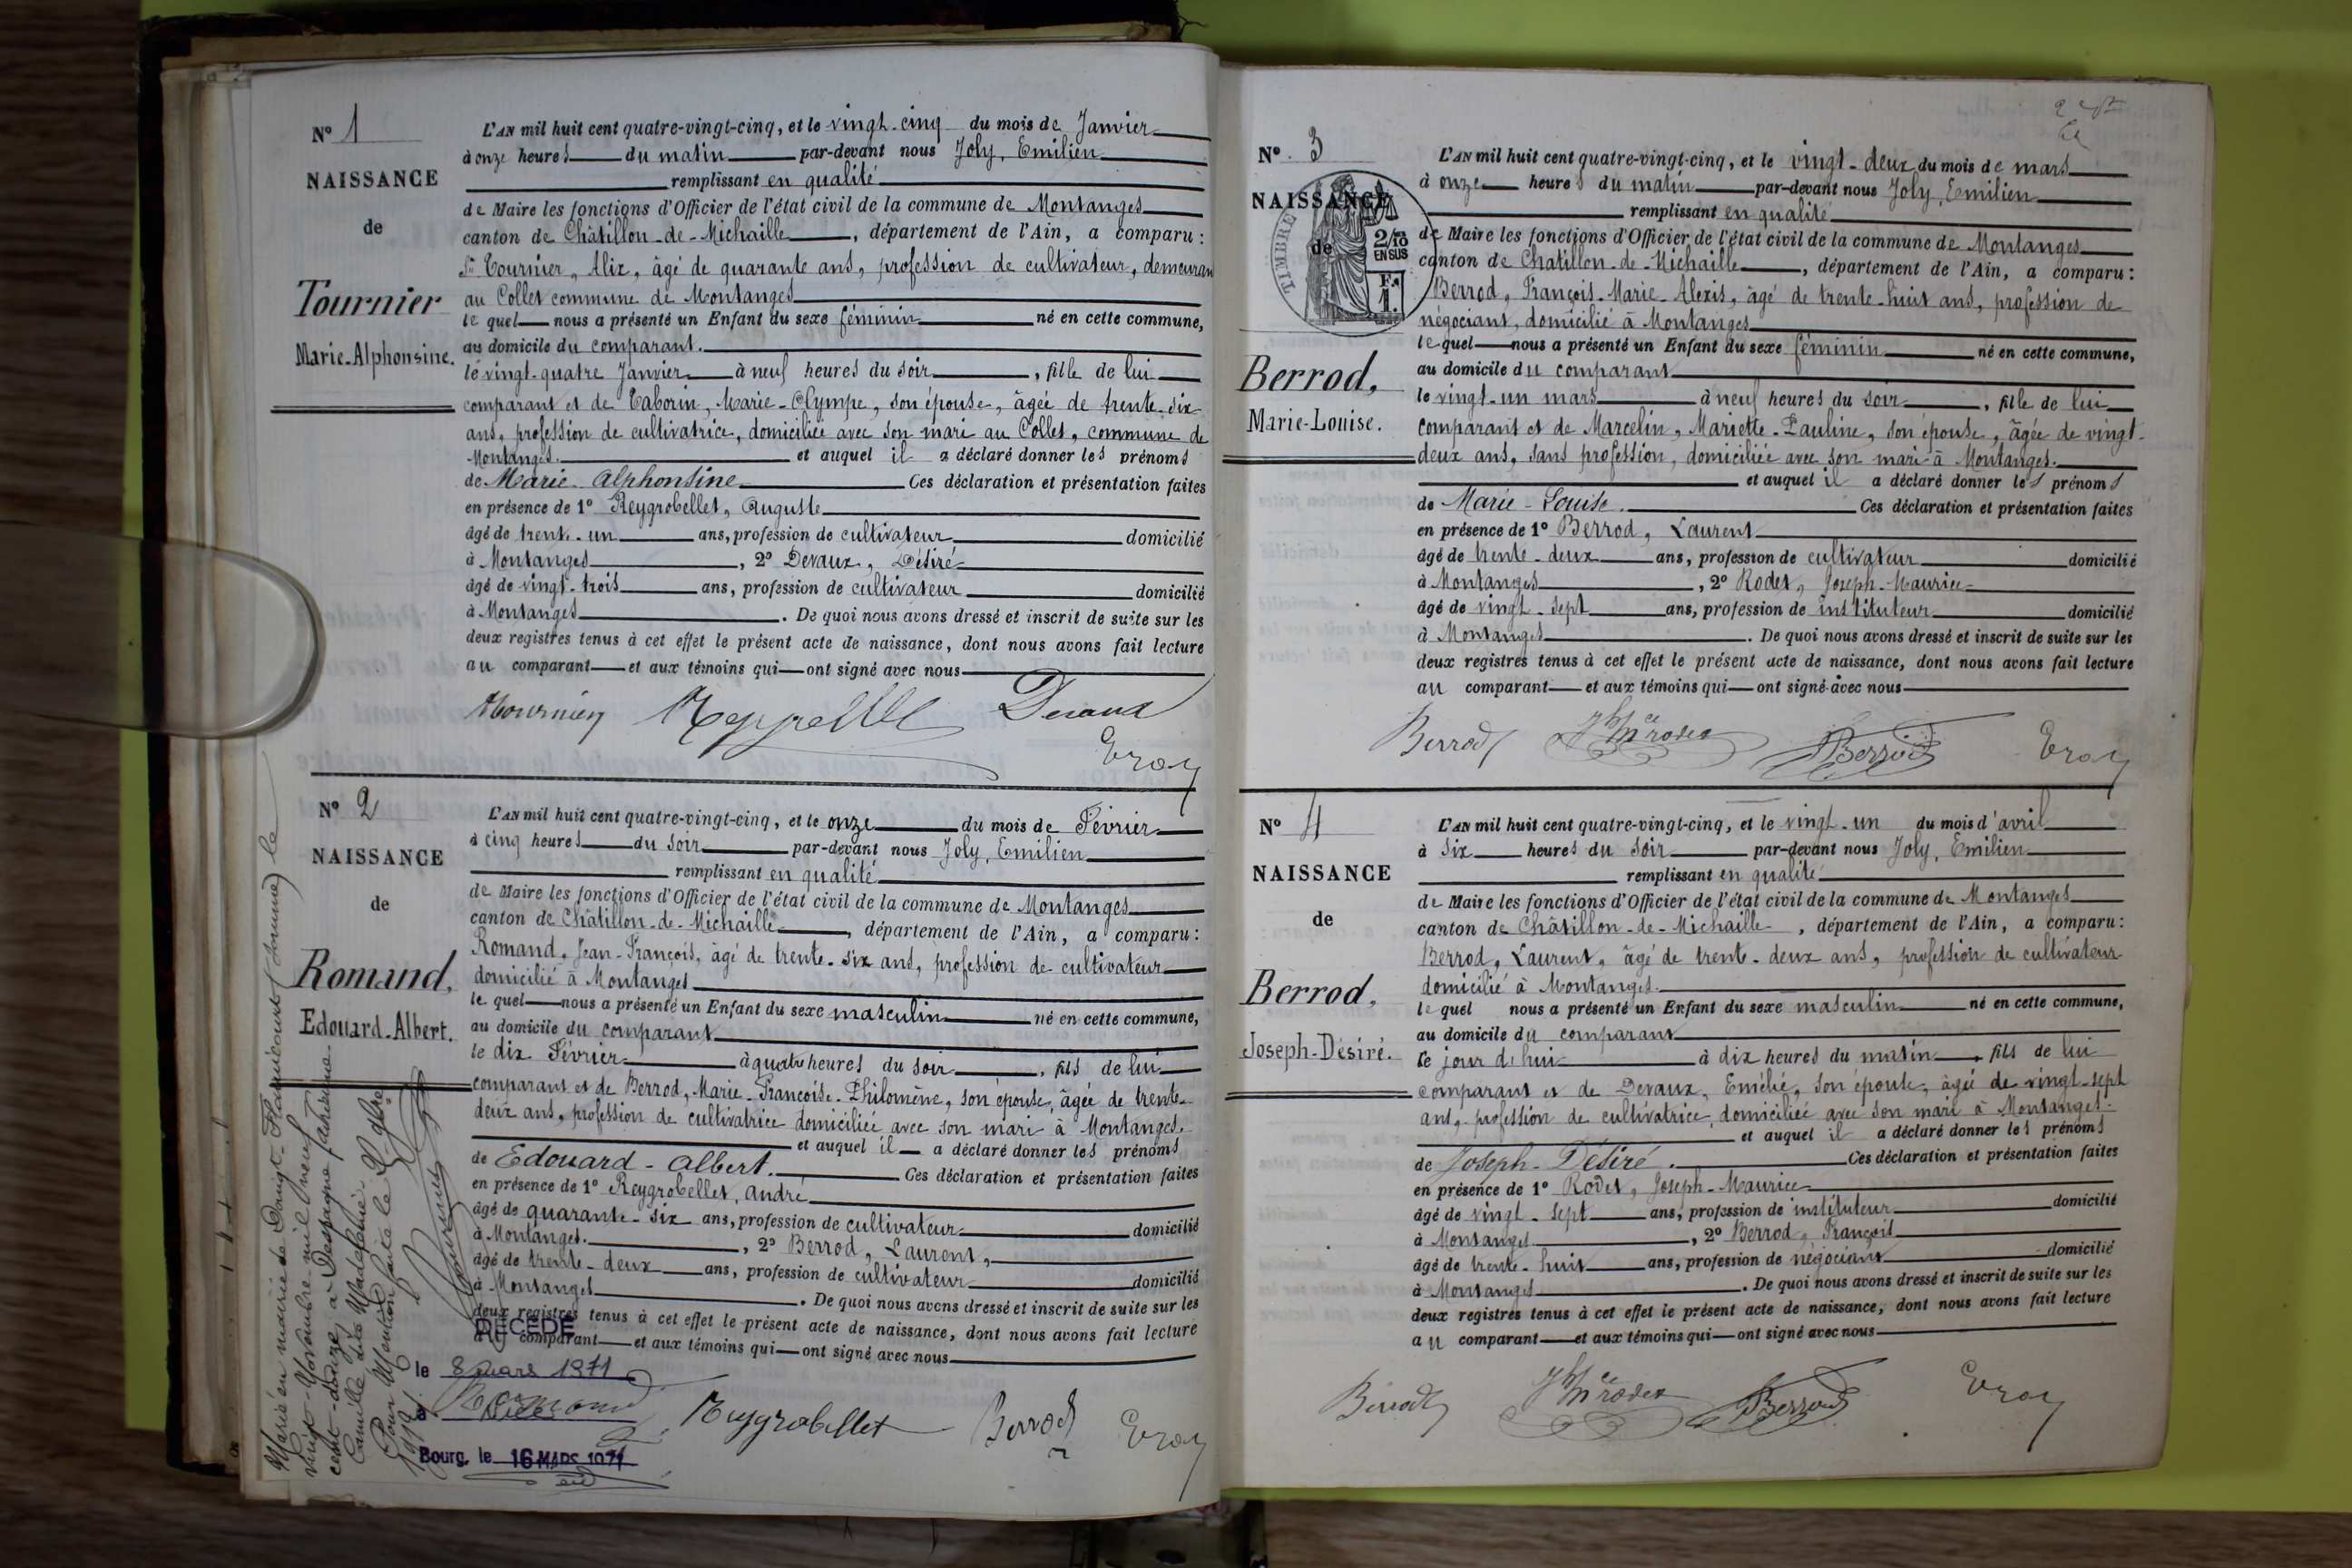 N° 1
NAISSANCE
de
Tournier
Marie-Alphonsine.
L'AN mil huit cent quatre-vingt-cinq, et le vingt-cinq du mois de Janvier
à onze heures du matin par-devant nous Joly, Emilien
remplissant en qualité
de Maire les fonctions d'Officier de l'état civil de la commune de Montanges
canton de Châtillon-de-Michaille, département de l'Ain, a comparu :
Sr Tournier, Alix, âgé de quarante ans, profession de cultivateur, demeuran
au Collet commune de Montanges
le quel nous a présenté un Enfant du sexe féminin né en cette commune,
au domicile du comparant.
le vingt-quatre Janvier à neuf heures du soir, fille de lui
comparant et de Taborin, Marie-Olympe, son épouse, âgée de trente-six
ans, profession de cultivatrice, domiciliée avec son mari au Collet, commune de
Montanges. et auquel il a déclaré donner les prénoms
de Marie-Alphonsine Ces déclaration et présentation faites
en présence de 1° Reygrobellet, Auguste
âgé de trente-un ans, profession de cultivateur domicilié
à Montanges, 2° Devaux, Désiré
âgé de vingt-trois ans, profession de cultivateur domicilié
à Montanges. De quoi nous avons dressé et inscrit de suite sur les
deux registres tenus à cet effet le présent acte de naissance, dont nous avons fait lecture
au comparant et aux témoins qui ont signé avec nous
Tournier Devaux
N° 2
NAISSANCE
de
Romand,
Edouard-Albert.
L'AN mil huit cent quatre-vingt-cinq, et le onze du mois de Février
à cinq heures du soir par-devant nous Joly, Emilien
remplissant en qualité
de Maire les fonctions d'Officier de l'état civil de la commune de Montanges
canton de Châtillon-de-Michaille, département de l'Ain, a comparu :
Romand, Jean-François, âgé de trente-six ans, profession de cultivateur
domicilié à Montanges
le quel nous a présenté un Enfant du sexe masculin né en cette commune,
au domicile du comparant
le dix Février à quatre heures du soir, fils de lui
comparant et de Berrod, Marie-Françoise-Philomène, son épouse, âgée de trente-
deux ans, profession de cultivatrice domiciliée avec son mari à Montanges.
et auquel il a déclaré donner les prénoms
de Edouard-Albert. Ces déclaration et présentation faites
en présence de 1° Reygrobellet, André
âgé de quarante-six ans, profession de cultivateur domicilié
à Montanges., 2° Berrod, Laurent,
âgé de trente-deux ans, profession de cultivateur domicilié
à Montanges. De quoi nous avons dressé et inscrit de suite sur les
deux registres tenus à cet effet le présent acte de naissance, dont nous avons fait lecture
au comparant et aux témoins qui ont signé avec nous
DÉCÉDÉ
le 8 mars 1971
à
Bourg, le 16 MARS 1971
Reygrobellet Berrod
Marié en mairie de (Somme) le
vingt Novembre mil neuf
cent-douze à Despagne
Camille dite Madeleine.
Pour Mention faite le
1919.
N° 3
NAISSANCE
de
TIMBRE
2/10
EN SUS
F.
1.
Berrod,
Marie-Louise.
L'AN mil huit cent quatre-vingt-cinq, et le vingt-deux du mois de mars
à onze heures du matin par-devant nous Joly, Emilien
remplissant en qualité
de Maire les fonctions d'Officier de l'état civil de la commune de Montanges
canton de Chatillon-de-Michaille, département de l'Ain, a comparu :
Berrod, François-Marie-Alexis, âgé de trente-huit ans, profession de
négociant, domicilié à Montanges
le quel nous a présenté un Enfant du sexe féminin né en cette commune,
au domicile du comparant
le vingt-un mars à neuf heures du soir, fille de lui
comparant et de Marcelin, Mariette-Pauline, son épouse, âgée de vingt-
deux ans, sans profession, domiciliée avec son mari à Montanges.
et auquel il a déclaré donner les prénoms
de Marie-Louise. Ces déclaration et présentation faites
en présence de 1° Berrod, Laurent
âgé de trente-deux ans, profession de cultivateur domicilié
à Montanges, 2° Rodet, Joseph-Maurice
âgé de vingt-sept ans, profession de instituteur domicilié
à Montanges. De quoi nous avons dressé et inscrit de suite sur les
deux registres tenus à cet effet le présent acte de naissance, dont nous avons fait lecture
au comparant et aux témoins qui ont signé avec nous
Berrod Jph Mce rodet Berrod
N° 4
NAISSANCE
de
Berrod,
Joseph-Désiré.
L'AN mil huit cent quatre-vingt-cinq, et le vingt-un du mois d'avril
à six heures du soir par-devant nous Joly, Emilien
remplissant en qualité
de Maire les fonctions d'Officier de l'état civil de la commune de Montanges
canton de Châtillon-de-Michaille, département de l'Ain, a comparu :
Berrod, Laurent, âgé de trente-deux ans, profession de cultivateur
domicilié à Montanges.
le quel nous a présenté un Enfant du sexe masculin né en cette commune,
au domicile du comparant
le jour d'hui à dix heures du matin, fils de lui
comparant et de Devaux, Emélie, son épouse, âgée de vingt-sept
ans, profession de cultivatrice, domiciliée avec son mari à Montanges.
et auquel il a déclaré donner les prénoms
de Joseph-Désiré. Ces déclaration et présentation faites
en présence de 1° Rodet, Joseph-Maurice
âgé de vingt-sept ans, profession de instituteur domicilié
à Montanges, 2° Berrod, François
âgé de trente-huit ans, profession de négociant domicilié
à Montanges. De quoi nous avons dressé et inscrit de suite sur les
deux registres tenus à cet effet le présent acte de naissance, dont nous avons fait lecture
au comparant et aux témoins qui ont signé avec nous
Berrod Jph Mce rodet Berrod